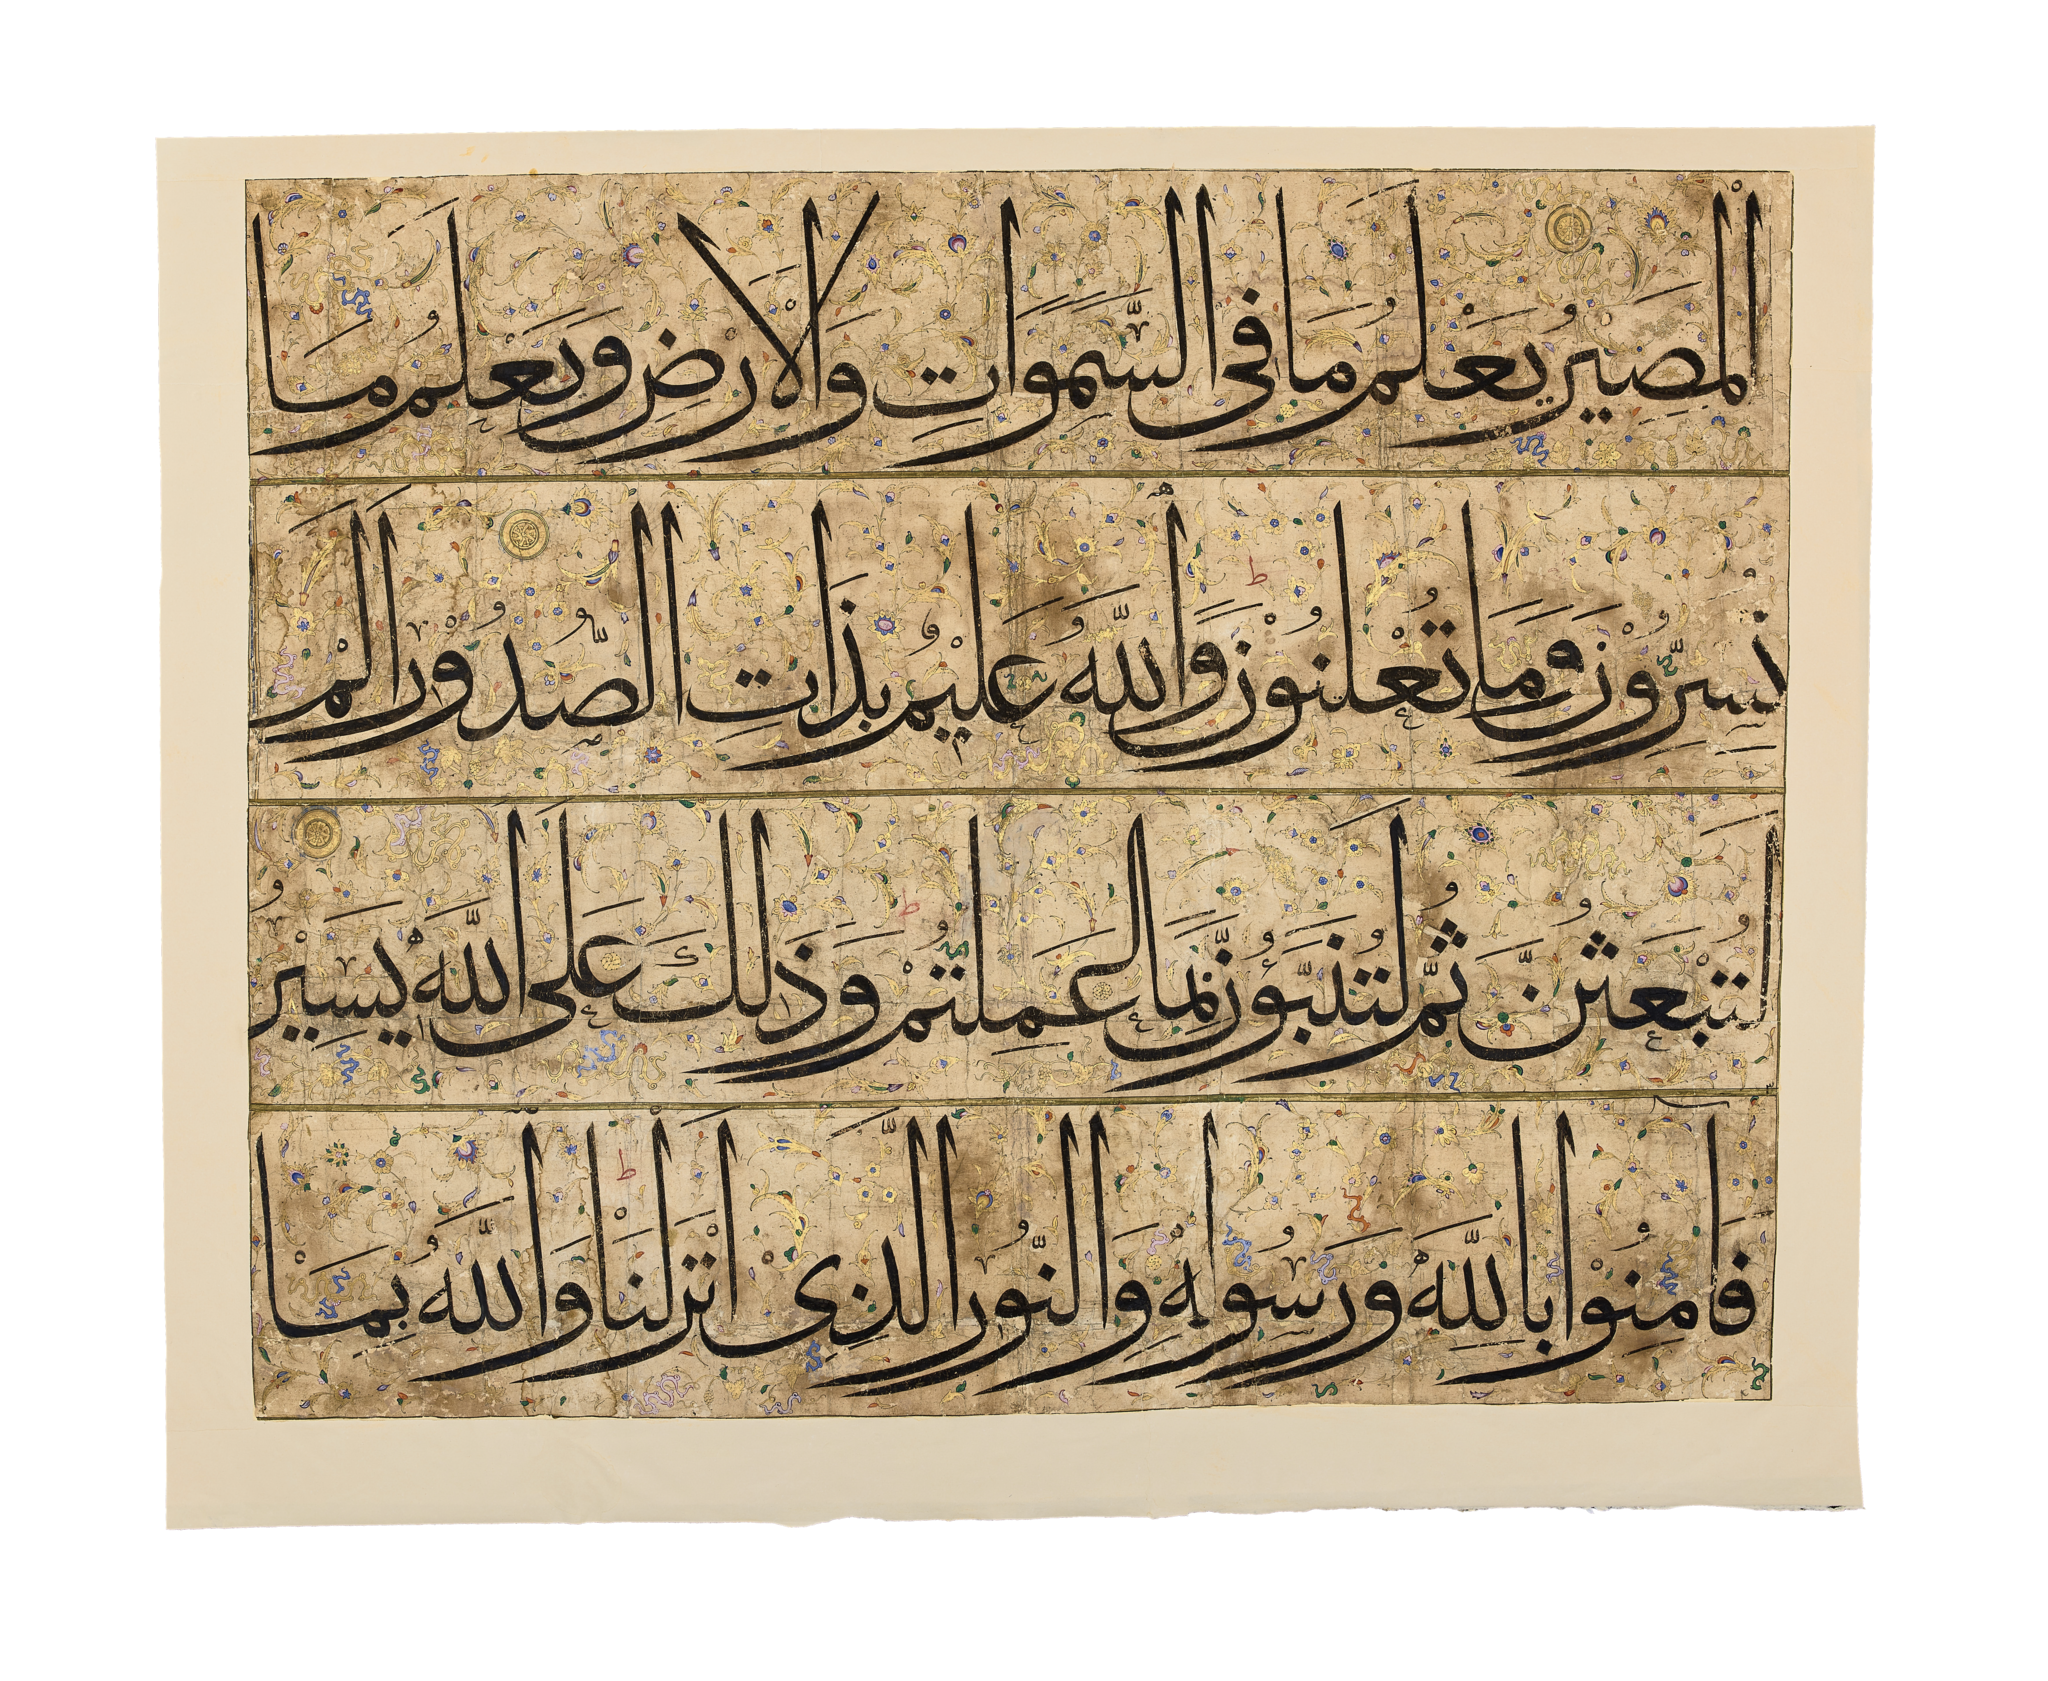 الْمَصِيرُ يَعْلَمُ مَا فِى السَّمَوَاتِ وَالْاَرْضِ وَيَعْلَمُ مَا
تُسِرُّوْنَ وَمَا تُعْلِنُوْنَ ط وَاللّٰهُ عَلِيْمٌ بِذَاتِ الصُّدُوْرِ اَلَمْ
لَتُبْعَثُنَّ ثُمَّ لَتُنَبَّؤُنَّ بِمَا عَمِلْتُمْ ط وَذٰلِكَ عَلَى اللّٰهِ يَسِيْرٌ
فَاٰمِنُوْا بِاللّٰهِ وَرَسُوْلِهٖ وَالنُّوْرِ الَّذِىْ اَنْزَلْنَا ط وَاللّٰهُ بِمَا